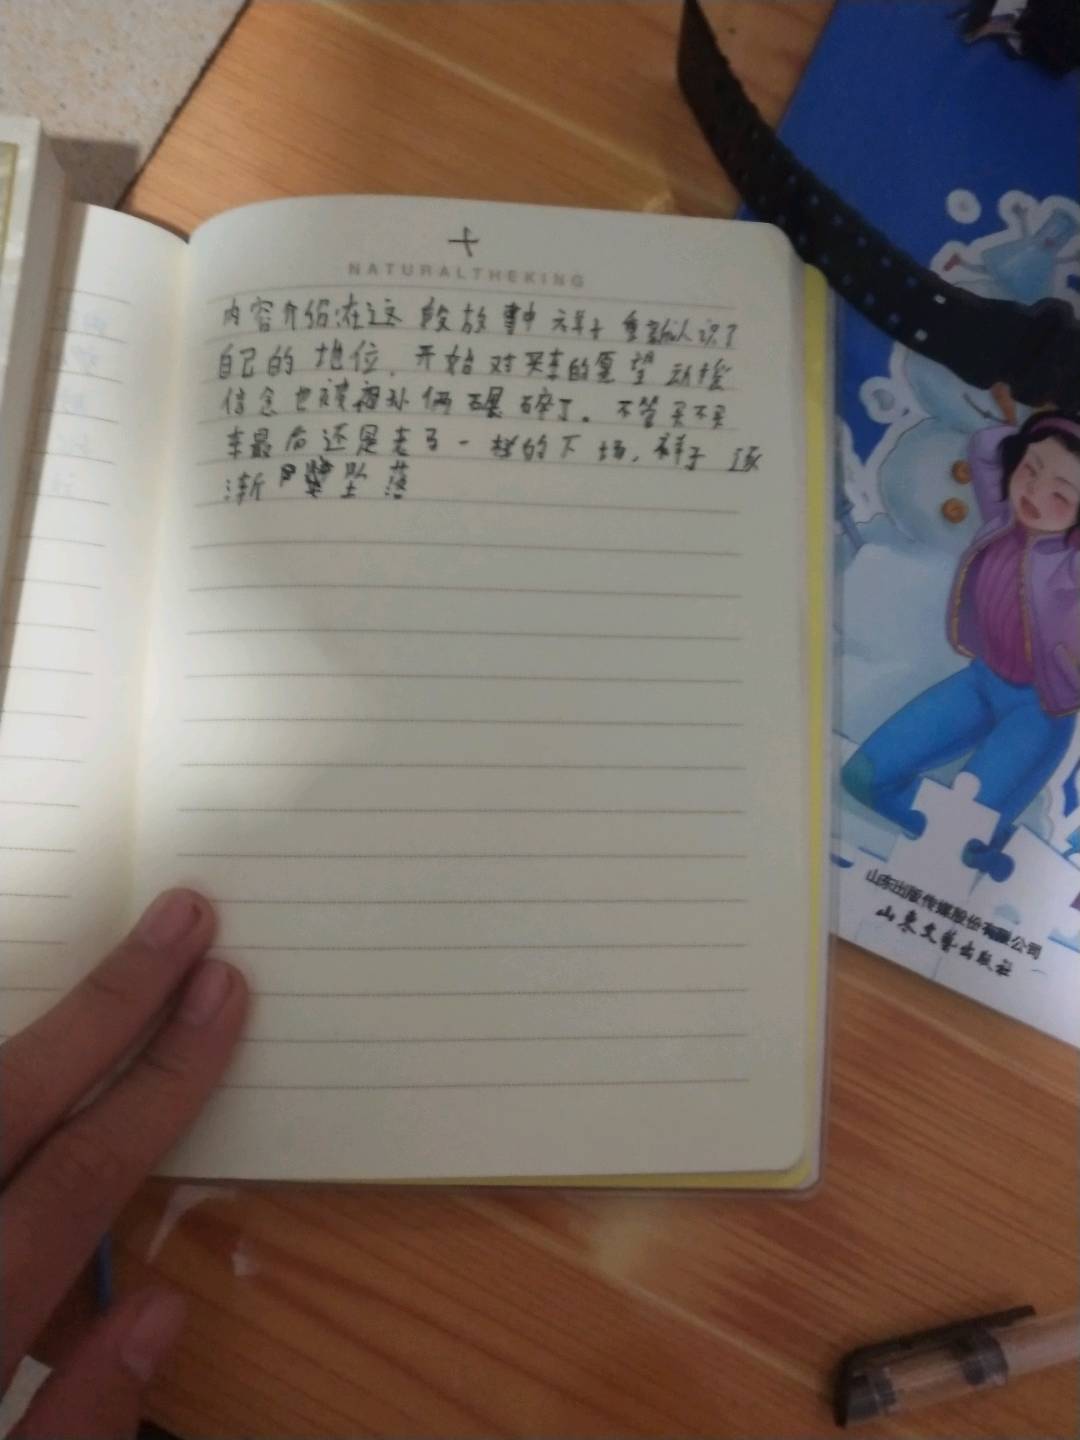 十
NATURALTHEKING
内容介绍:在这段故事中祥子重新认识了
自己的地位,开始对买车的愿望动摇
信念也被祖孙俩碾碎了。不管买不买
车最后还是老马一样的下场,祥子逐
渐坠落
山东出版传媒股份有限公司
山东文艺出版社